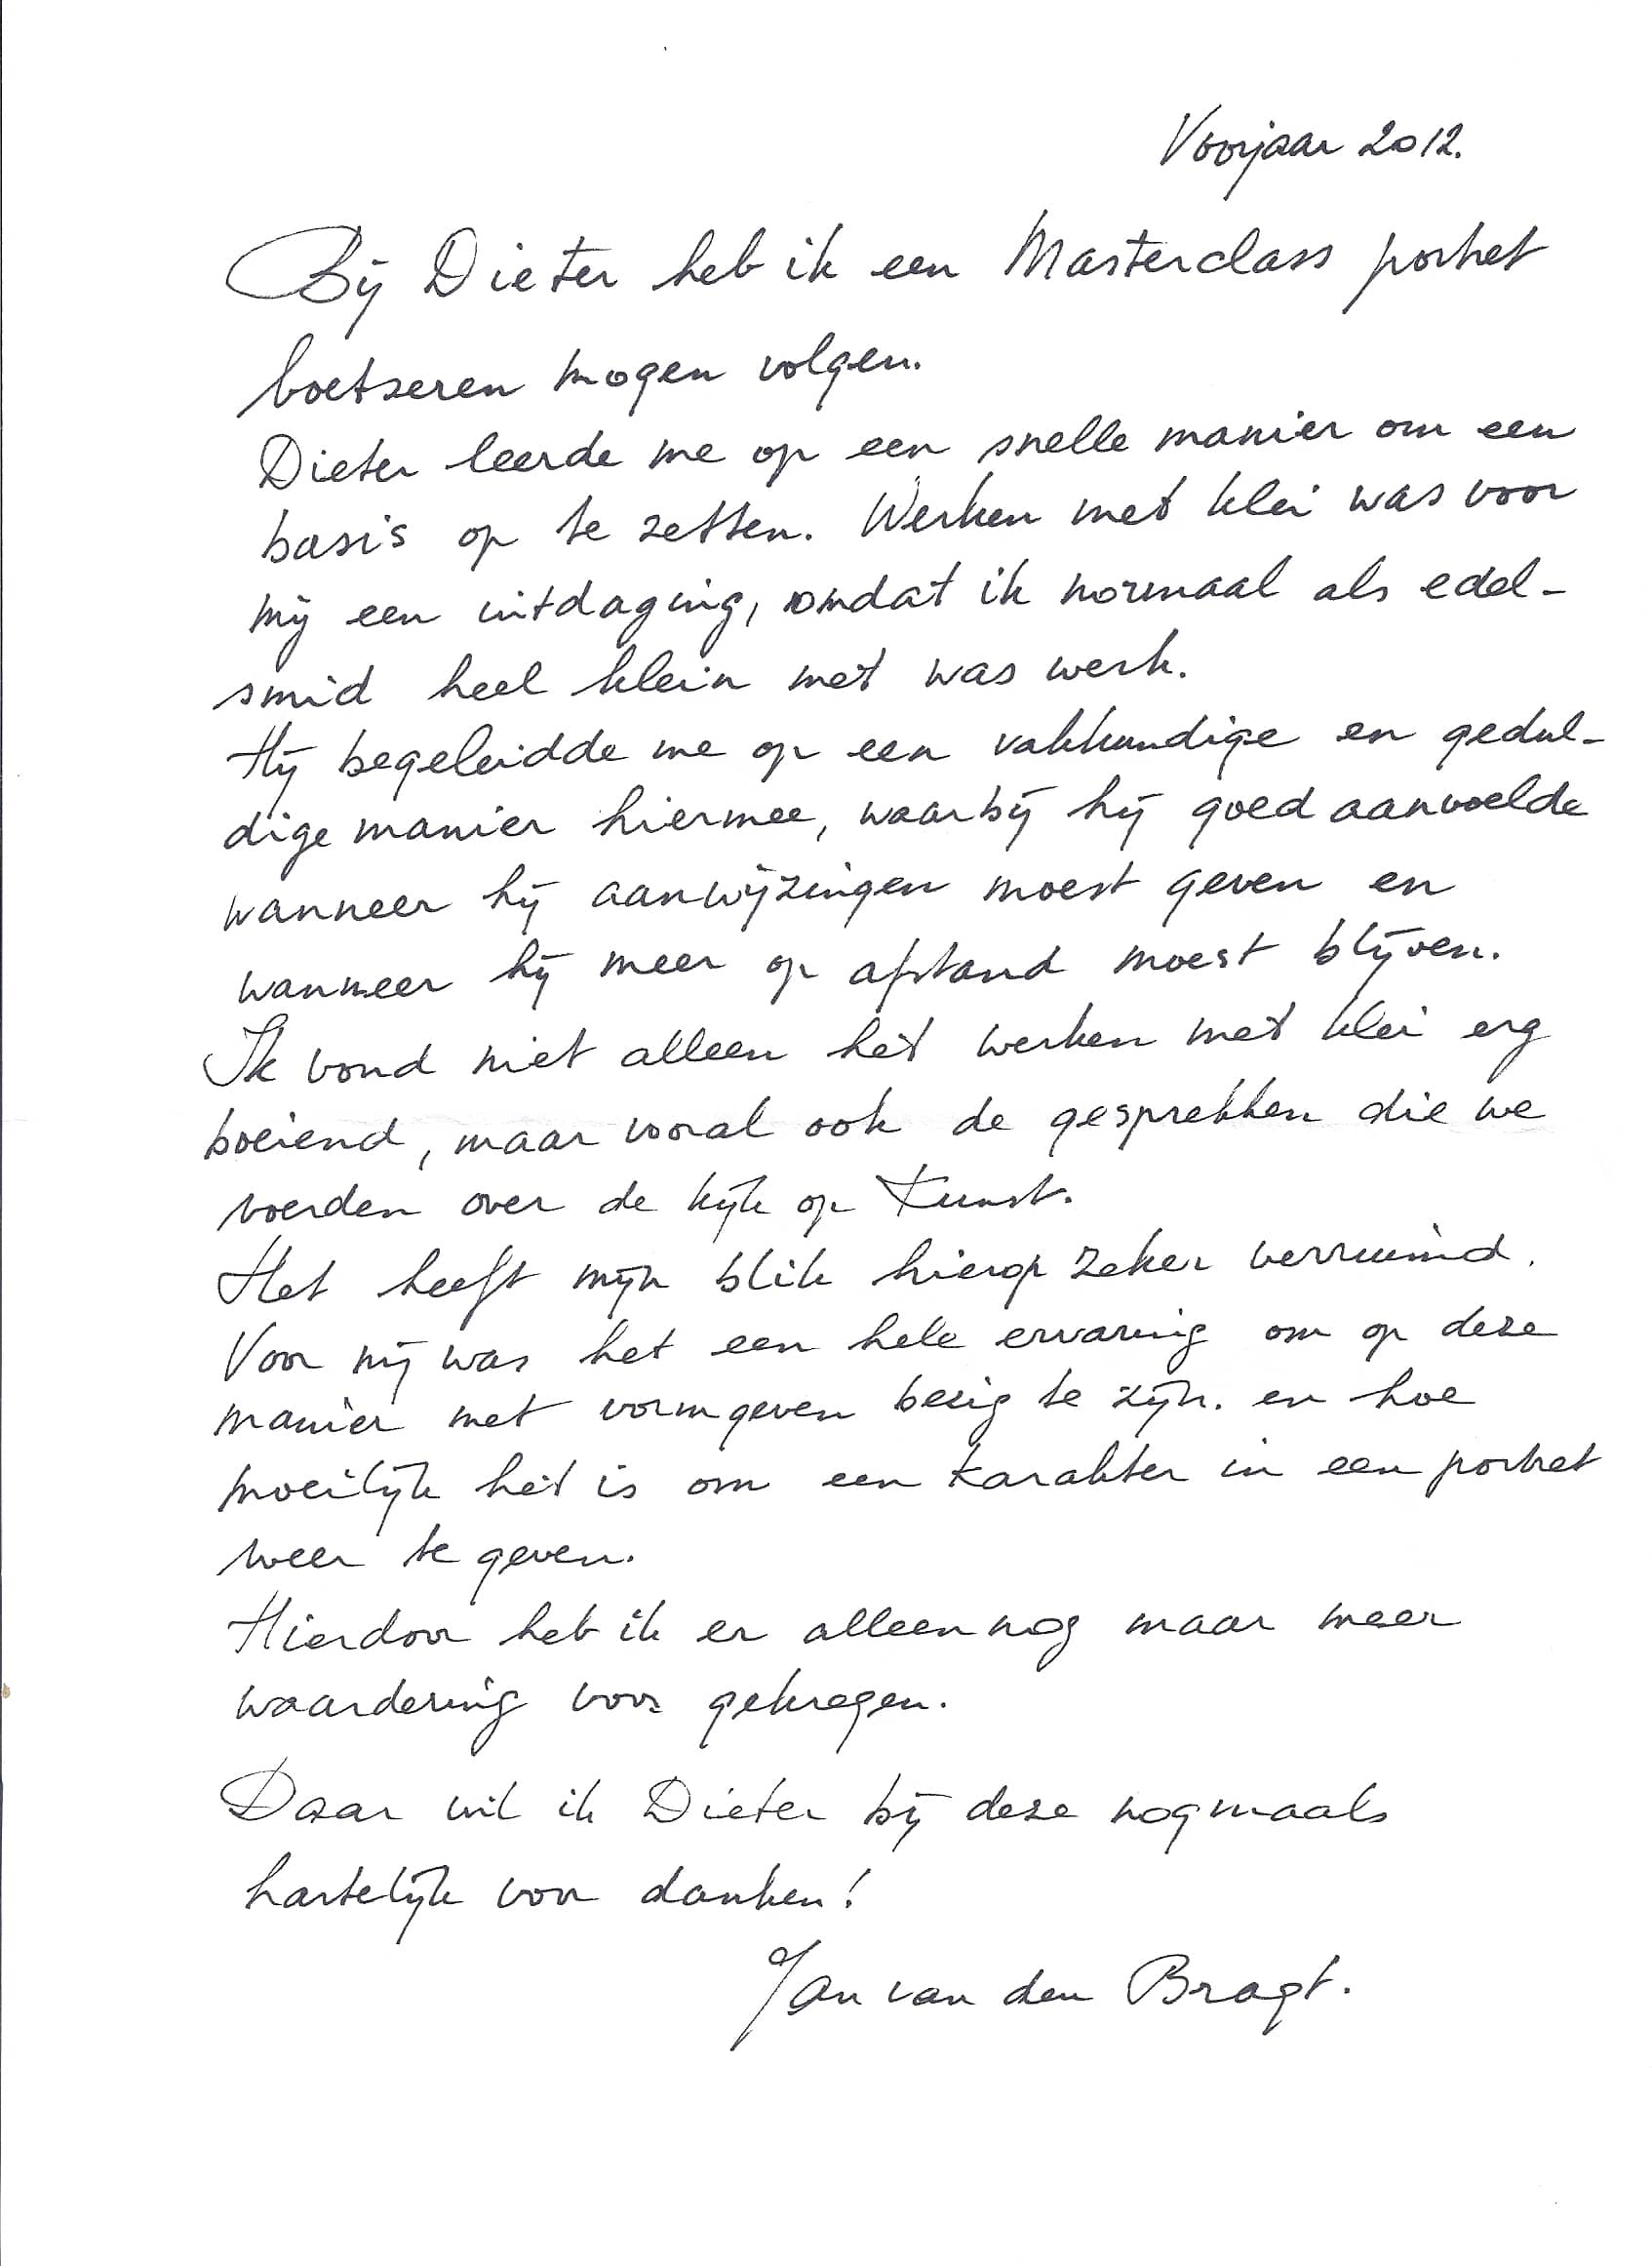 Voorjaar 2012.
Bij Dieter heb ik een Masterclass portret
boetseren mogen volgen.
Dieter leerde me op een snelle manier om een
basis op te zetten. Werken met klei was voor
mij een uitdaging, omdat ik normaal als edel-
smid heel klein met was werk.
Hij begeleidde me op een vakkundige en gedul-
dige manier hiermee, waarbij hij goed aanvoelde
wanneer hij aanwijzingen moest geven en
wanneer hij meer op afstand moest blijven.
Ik vond niet alleen het werken met klei erg
boeiend, maar vooral ook de gesprekken die we
voerden over de kijk op Kunst.
Het heeft mijn blik hierop zeker verruimd.
Voor mij was het een hele ervaring om op deze
manier met vormgeven bezig te zijn. en hoe
moeilijk het is om een karakter in een portret
weer te geven.
Hierdoor heb ik er alleen nog maar meer
waardering voor gekregen.
Daar wil ik Dieter bij deze nogmaals
hartelijk voor danken!
Jan van den Bragt.